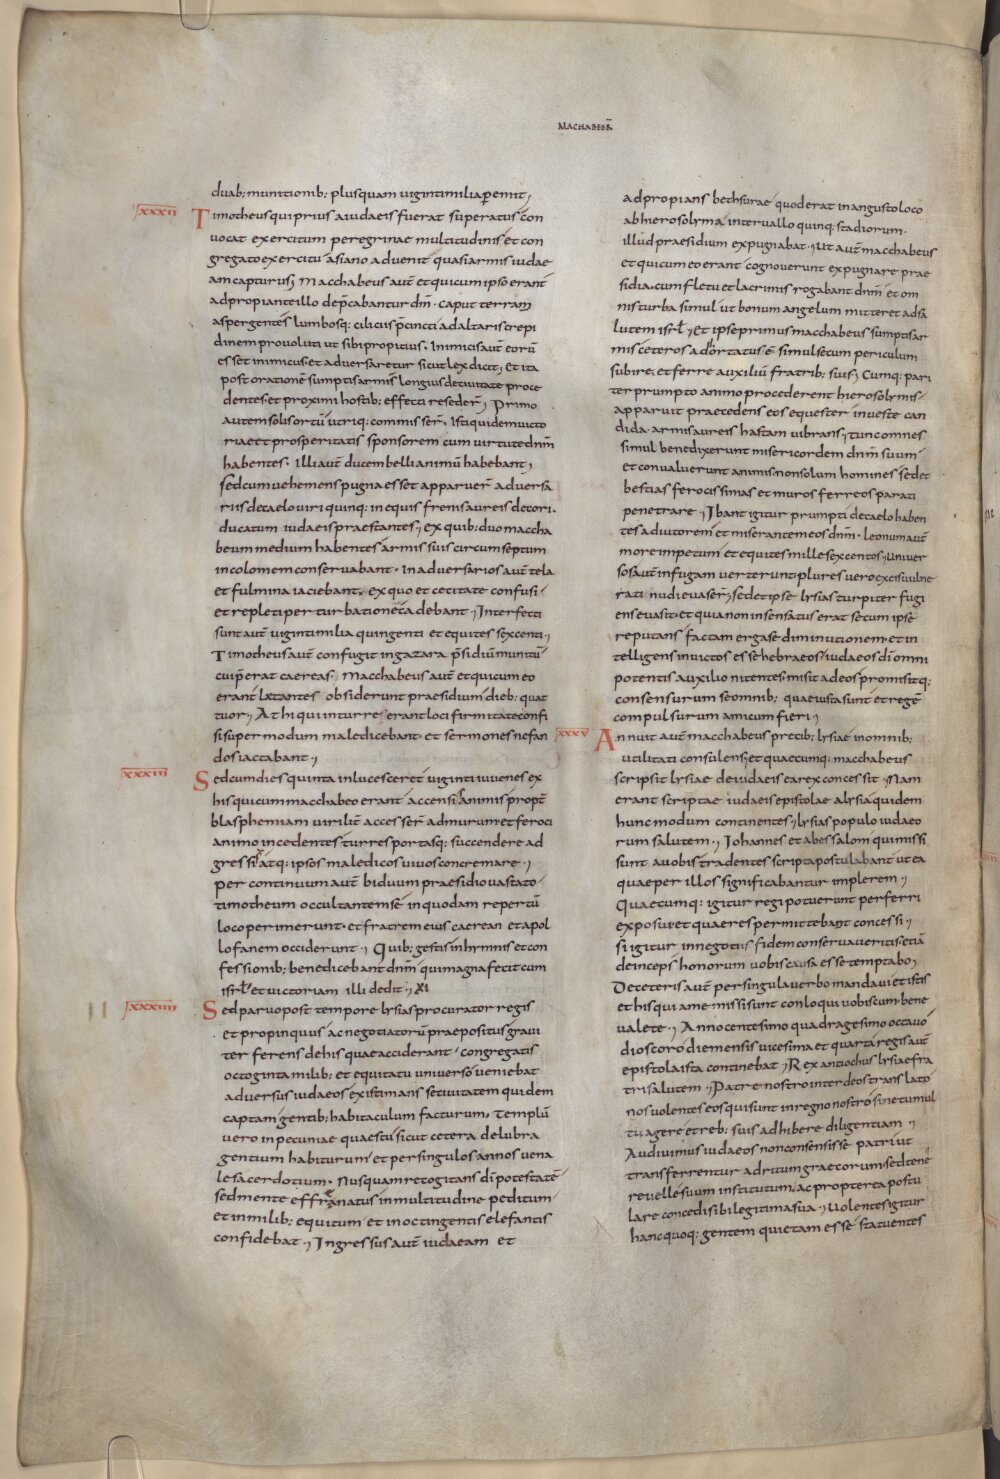 MACHABEOR̄
duab; munitionib; plusquam uigintimilia peremit;
XXXII
Timotheus qui prius a iudaeis fuerat superatus con
uocat exercitum peregrinae multitudinis et con
gregato exercitu asiano aduenit quasi armis iudae
am capturus; Macchabeus aut̄ et qui cum ipso erant
adpropiante illo dep̄cabantur dn̄m. caput terram
aspergentes lumbosq; ciliciis p̄cincti ad altaris crepi
dinem prouoluti ut sibi propitius. Inimicis aut̄ eorū
esset inimicus. et aduersaretur sicut lex dicit; Et ita
post orationē sumptis armis longius de ciuitate proce
dentes. et proximi hostib; effecti reseder̄; Primo
autem solis ortū utriq; commisser̄. Isti quidem uicto
riae et prosperitatis sponsorem cum uirtute dn̄m
habentes. Illi aut̄ ducem belli animū habebant;
sed cum uehemens pugna esset apparuer̄ aduersa
riis de caelo uiri quinq; in equis frenis aureis decori.
ducatum iudaeis praestantes; ex quib; duo maccha
beum medium habentes armis suis circumseptum
incolomem conseruabant. In aduersarios aut̄ tela
et fulmina iaciebant. ex quo et cecitate confusi
et repleti perturbatione cadebant; Interfecti
sunt aut̄ uiginti milia quingenti et equites sexcenti;
Timotheus aut̄ confugit in gazara p̄sidiū munitū
cui p̄erat caereas; Macchabeus aut̄ et qui cum eo
erant laetantes obsiderunt praesidium dieb; quat
tuor; At hi qui in turre erant loci firmitate confi
si supermodum maledicebant. et sermones nefan
dos iactabant;
XXXIII
Sed cum dies quinta inlucesceret uiginti iuuenes ex
his qui cum macchabeo erant accensi animis propt̄
blasphemiam uirilit̄ accesser̄ ad murum. et feroci
animo incedentes turres portasq; succendere ad
gressi atq; ipsos maledicos uiuos concremare;
per continuum aut̄ biduum praesidio uastato.
timotheum occultantem se in quodam repertū
loco perimerunt. et fratrem eius caerean et apol
lofanem occiderunt; Quib; gestis in hymnis et con
fessionib; benedicebant dn̄m qui magna fecit cum
isrl̄ et uictoriam illi dedit; XI
XXXIIII
Sed paruo post tempore lysias procurator regis
et propinquus ac negotiatorū praepositus graui
ter ferens de his quae acciderant. congregatis
octoginta milib; et equitatu uniuerso ueniebat
aduersus iudaeos existimans se ciuitatem quidem
captam gentib; habitaculum facturum. Templū
uero in pecuniae quaestū sicut cetera delubra
gentium habiturum et per singulos annos uena
le sacerdotium. Nusquam recogitans dī potestatē
sed mente effranatus in multitudine peditum.
et in milib; equitum et in octingentis elefantis
confidebat; Ingressus aut̄ iudaeam et
adpropians bethsurae quod erat in angusto loco
ab hierosolyma interuallo quinq; stadiorum.
illud praesidium expugnabat. Ut aut̄ macchabeus
et qui cum eo erant cognouerunt expugnare prae
sidia. cum fletu et lacrimis rogabant dn̄m et om
nis turba simul ut bonum angelum mitteret ad sa
lutem isrl̄; Et ipse primus macchabeus sumptis ar
mis ceteros adhortatus ē simul secum periculum
subire. et ferre auxiliū fratrib; suis; Cumq; pari
ter prumpto animo procederent hierosolymis
apparuit praecedens eos equester in ueste can
dida. armis aureis hastam uibrans; tunc omnes
simul benedixerunt misericordem dn̄m suum.
et conualuerunt animis. non solum homines sed et
bestias ferocissimas et muros ferreos parati
penetrare; Ibant igitur prumpti de caelo haben
tes adiutorem et miserantem eos dn̄m. leonum aut̄
more impetum et equites mille sexcentos; Uniuer
sos aut̄ in fugam uerterunt plures uero ex eis uulne
rati nudi euaser̄; sed et ipse lysias turpiter fugi
ens euasit. et quia non insensatus erat secum ipse
reputans factam erga se diminutionem. et in
tellegens inuictos esse hebraeos iudaeos dī omni
potentis auxilio nitentes. misit ad eos promisitq;
consensurum se omnib; quae iusta sunt et regē
compulsurum amicum fieri;
XXXV
Annuit aut̄ macchabeus precib; lysiae in omnib;
utilitati consulens; et quaecumq; macchabeus
scripsit lysiae de iudaeis ea rex concessit. Nam
erant scriptae iudaeis epistolae a lysia quidem
hunc modum continentes; lysias populo iudaeo
rum salutem; Iohannes et abessalom qui missi
sunt a uobis tradentes scripta postulabant ut ea
quae per illos significabantur implerem;
Quaecumq; igitur regi potuerunt perferri
exposui. et quae res permittebant concessi;
si igitur in negotiis fidem conseruaueritis etiā
deinceps honorum uobis causa esse temptabo;
De ceteris aut̄ per singula uerbo mandaui et istis
et his qui a me missi sunt conloqui uobiscum. bene
ualete; Anno centesimo quadragesimo octauo
dioscoro die mensis uicesima et quarta regis aut̄
epistola ista continebat; Rex antiochus lysiae fra
tri salutem; Patre nostro inter deos translato
nos uolentes eos qui sunt in regno nostro sine tumul
tu agere et reb; suis adhibere diligentiam;
Audiuimus iudaeos non consensisse patri ut
transferrentur ad ritum graecorum sed tene
re uelle suum institutum. ac propterea postu
lare concedi sibi legitima sua; Uolentes igitur
hanc quoq; gentem quietam esse statuentes